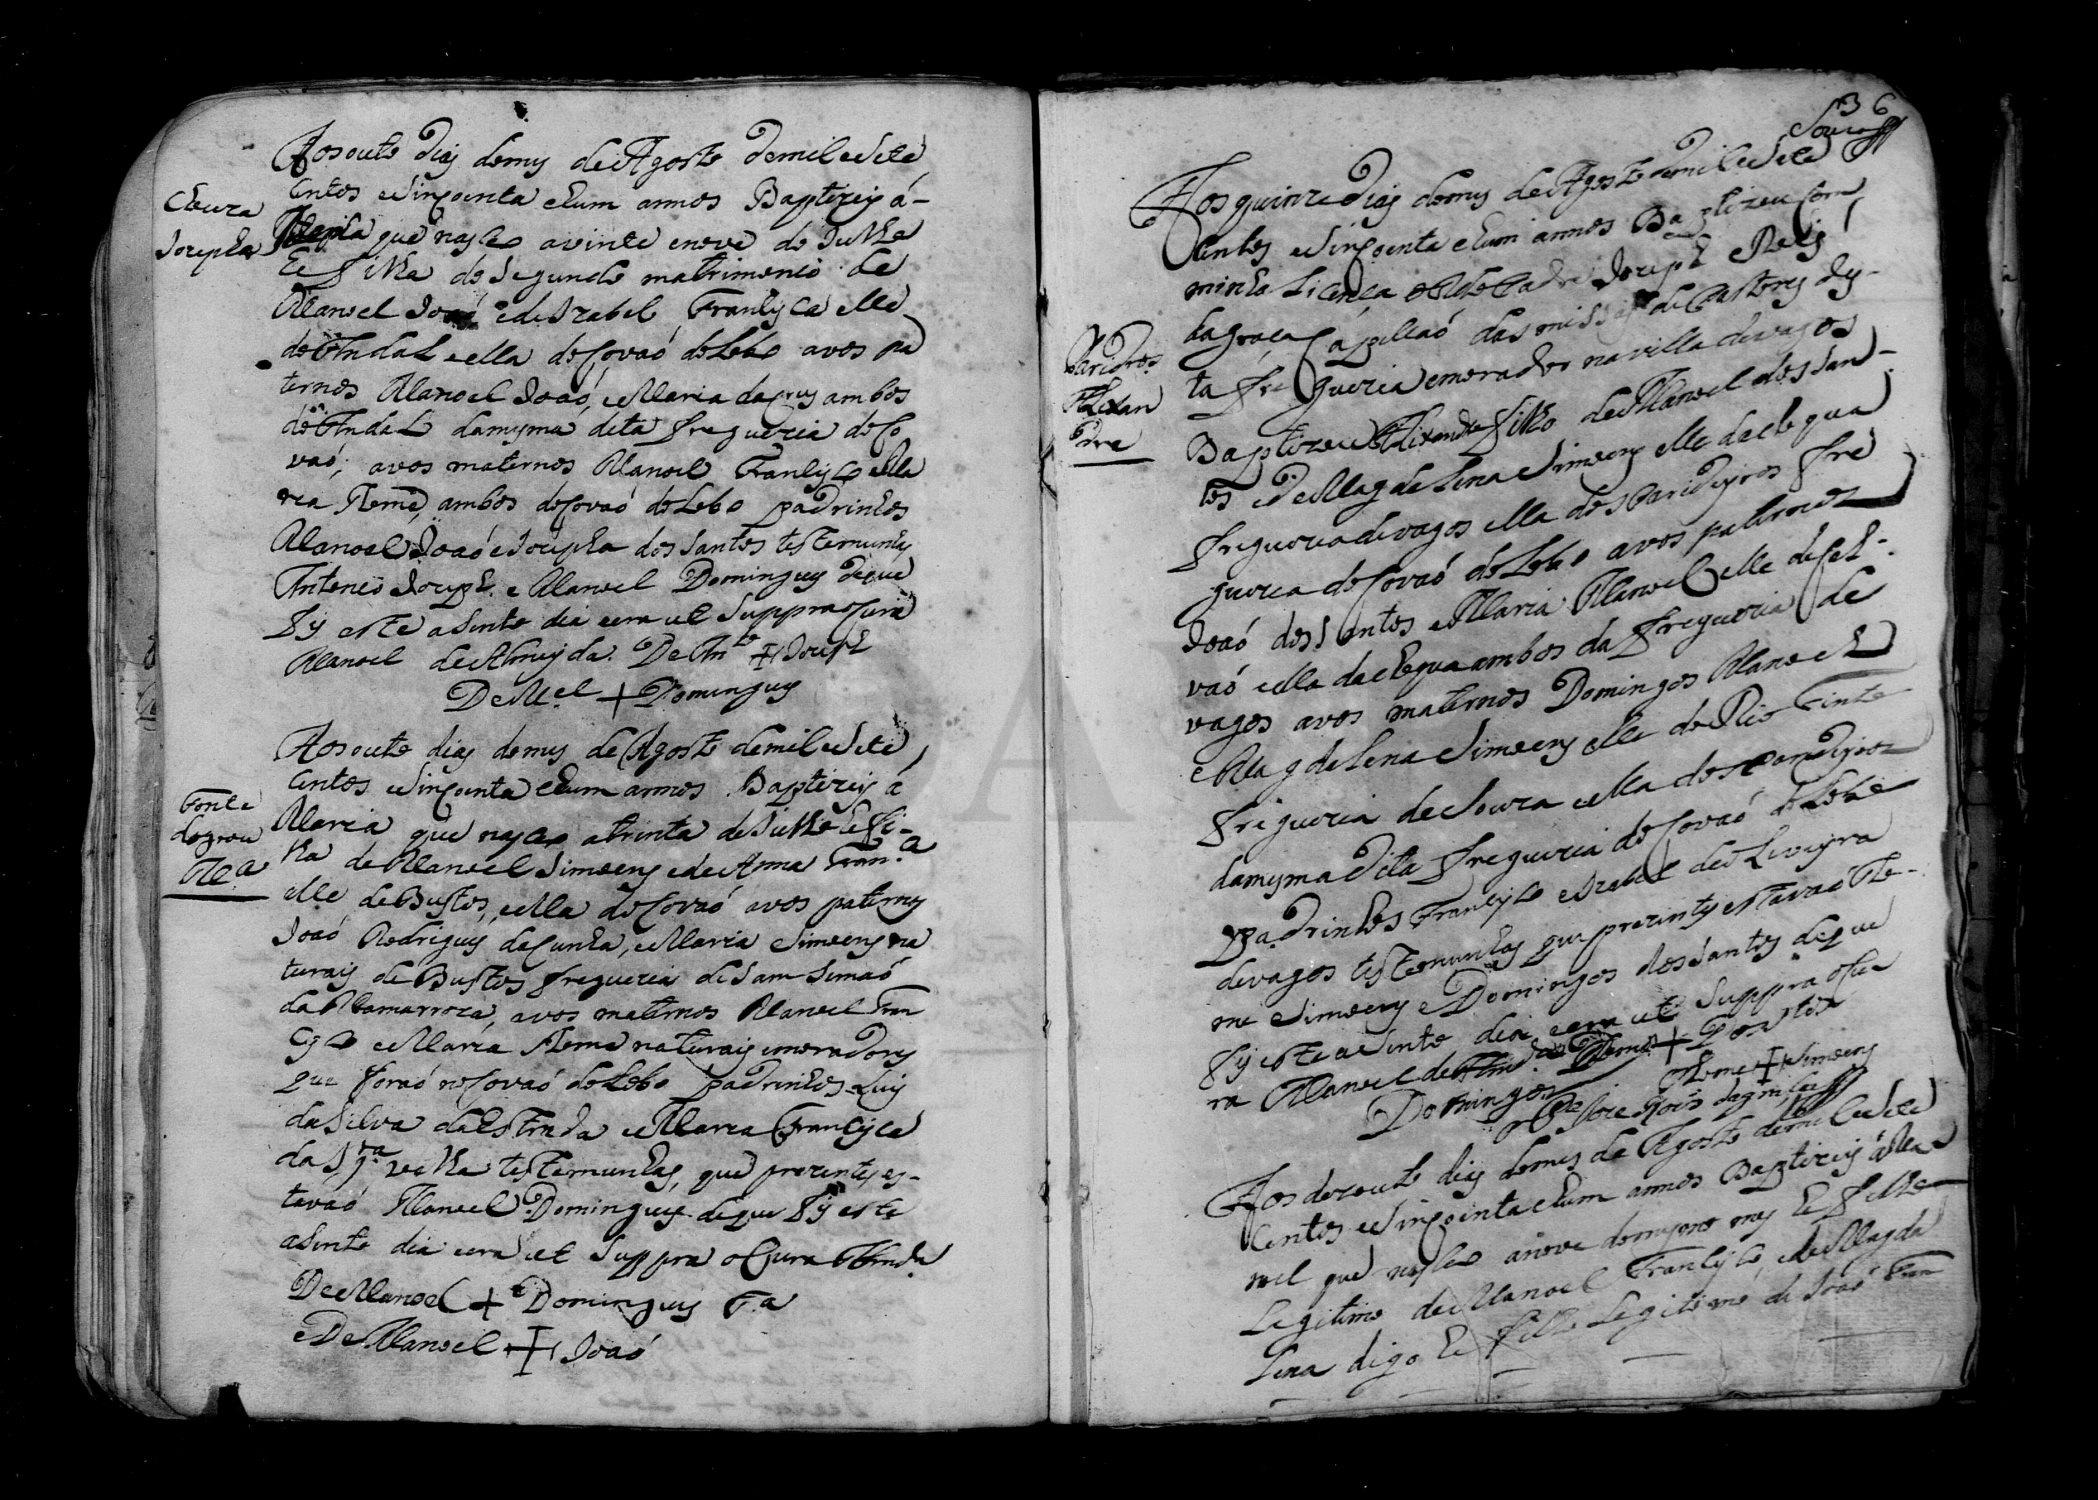 Aos outo dias do mes de Agosto de mil e sete
centos e sincoenta e hum annos Baptizey á
Josepha que nasceo a vinte e nove de Julho
he filha do segundo matrimonio de
Manoel Joaó e de Izabel Francysca elle
de Andal e ella do Covaó do Lobo avos pa
ternos Manoel Joaó, e Maria da Crus ambos
de Andal da mesma dita freguezia do Co
vaó, avos maternos Manoel Francysco e Ma
ria Thome, ambos do Covaó do Lobo padrinhos
Manoel Joaó e Josepha dos Santos testemunhas
Antonio Joseph. e Manoel Domingues de que
fis este asento dia e era ut suppra o Cura
Manoel de Almeyda. De Anto + Joseph
De Mel + Domingues
Josepha
Aos outo dias do mes de Agosto de mil e sete
centos e sincoenta e hum annos Baptizey a
Maria que nasceo a trinta de Julho he fi-
lha de Manoel Simoens e de Anna Fran.ca
elle de Bustos, e ella do Covaó avos paternos
Joaó Rodrigues da Cunha, e Maria Simoens na
turais de Bustos freguezia de Sam Simaó
da Mamarroza, avos maternos Manoel Fran
cysco e Maria Thome naturais e moradores
que foraó no Covaó do Lobo padrinhos Luis
da Silva da Estrada e Maria Francysca
testemunhas, que prezentes es-
tavaó Manoel Domingues de que fis este
asento dia e era ut suppra o Cura
De Manoel + Domingues
e De Manoel + Joaó
Fonte
do grou
Ma
36
Souza
Aos quinze dias do mes de Agosto de mil e sete
centos e sincoenta e hum annos Baptizou com
minha licença o Padre Joseph Reis
da graça Capellaó das missas
ta freguezia e morador na villa de vagos
Baptizou Alixandre filho de Manoel dos San-
tos e de Magdelena Simoens elle da
freguezia de vagos ella dos Parideyros fre
guezia do Covaó do Lobo avos paternos
Joaó dos Santos e Maria Manoel elle
vaó e ella da ambos da freguezia de
vagos avos maternos Domingos Manoel
e Magdelena Simoens elle do Rio tinto
freguezia de Souza e ella dos Paridejros
da mesma dita freguezia do Covaó do Lobo
Padrinhos Francysco e Izabel de Oliveyra
de vagos testemunhas que prezentes estavaó Tho-
me Simoens e Domingos dos Santos de que
fis este asento dia e era ut suppra o Cu
ra Manoel de
Thome + Simoens
Domingos
Paridros
Alexan
dre
Aos dezouto dias do mes de Agosto de mil e sete
centos e sincoenta e hum annos Baptizey á Ma
noel que nasceo a nove do mesmo mes he filho
Legitimo de Manoel Francysco, e de Magda
lena digo he filho Legitimo de Joaó Fran